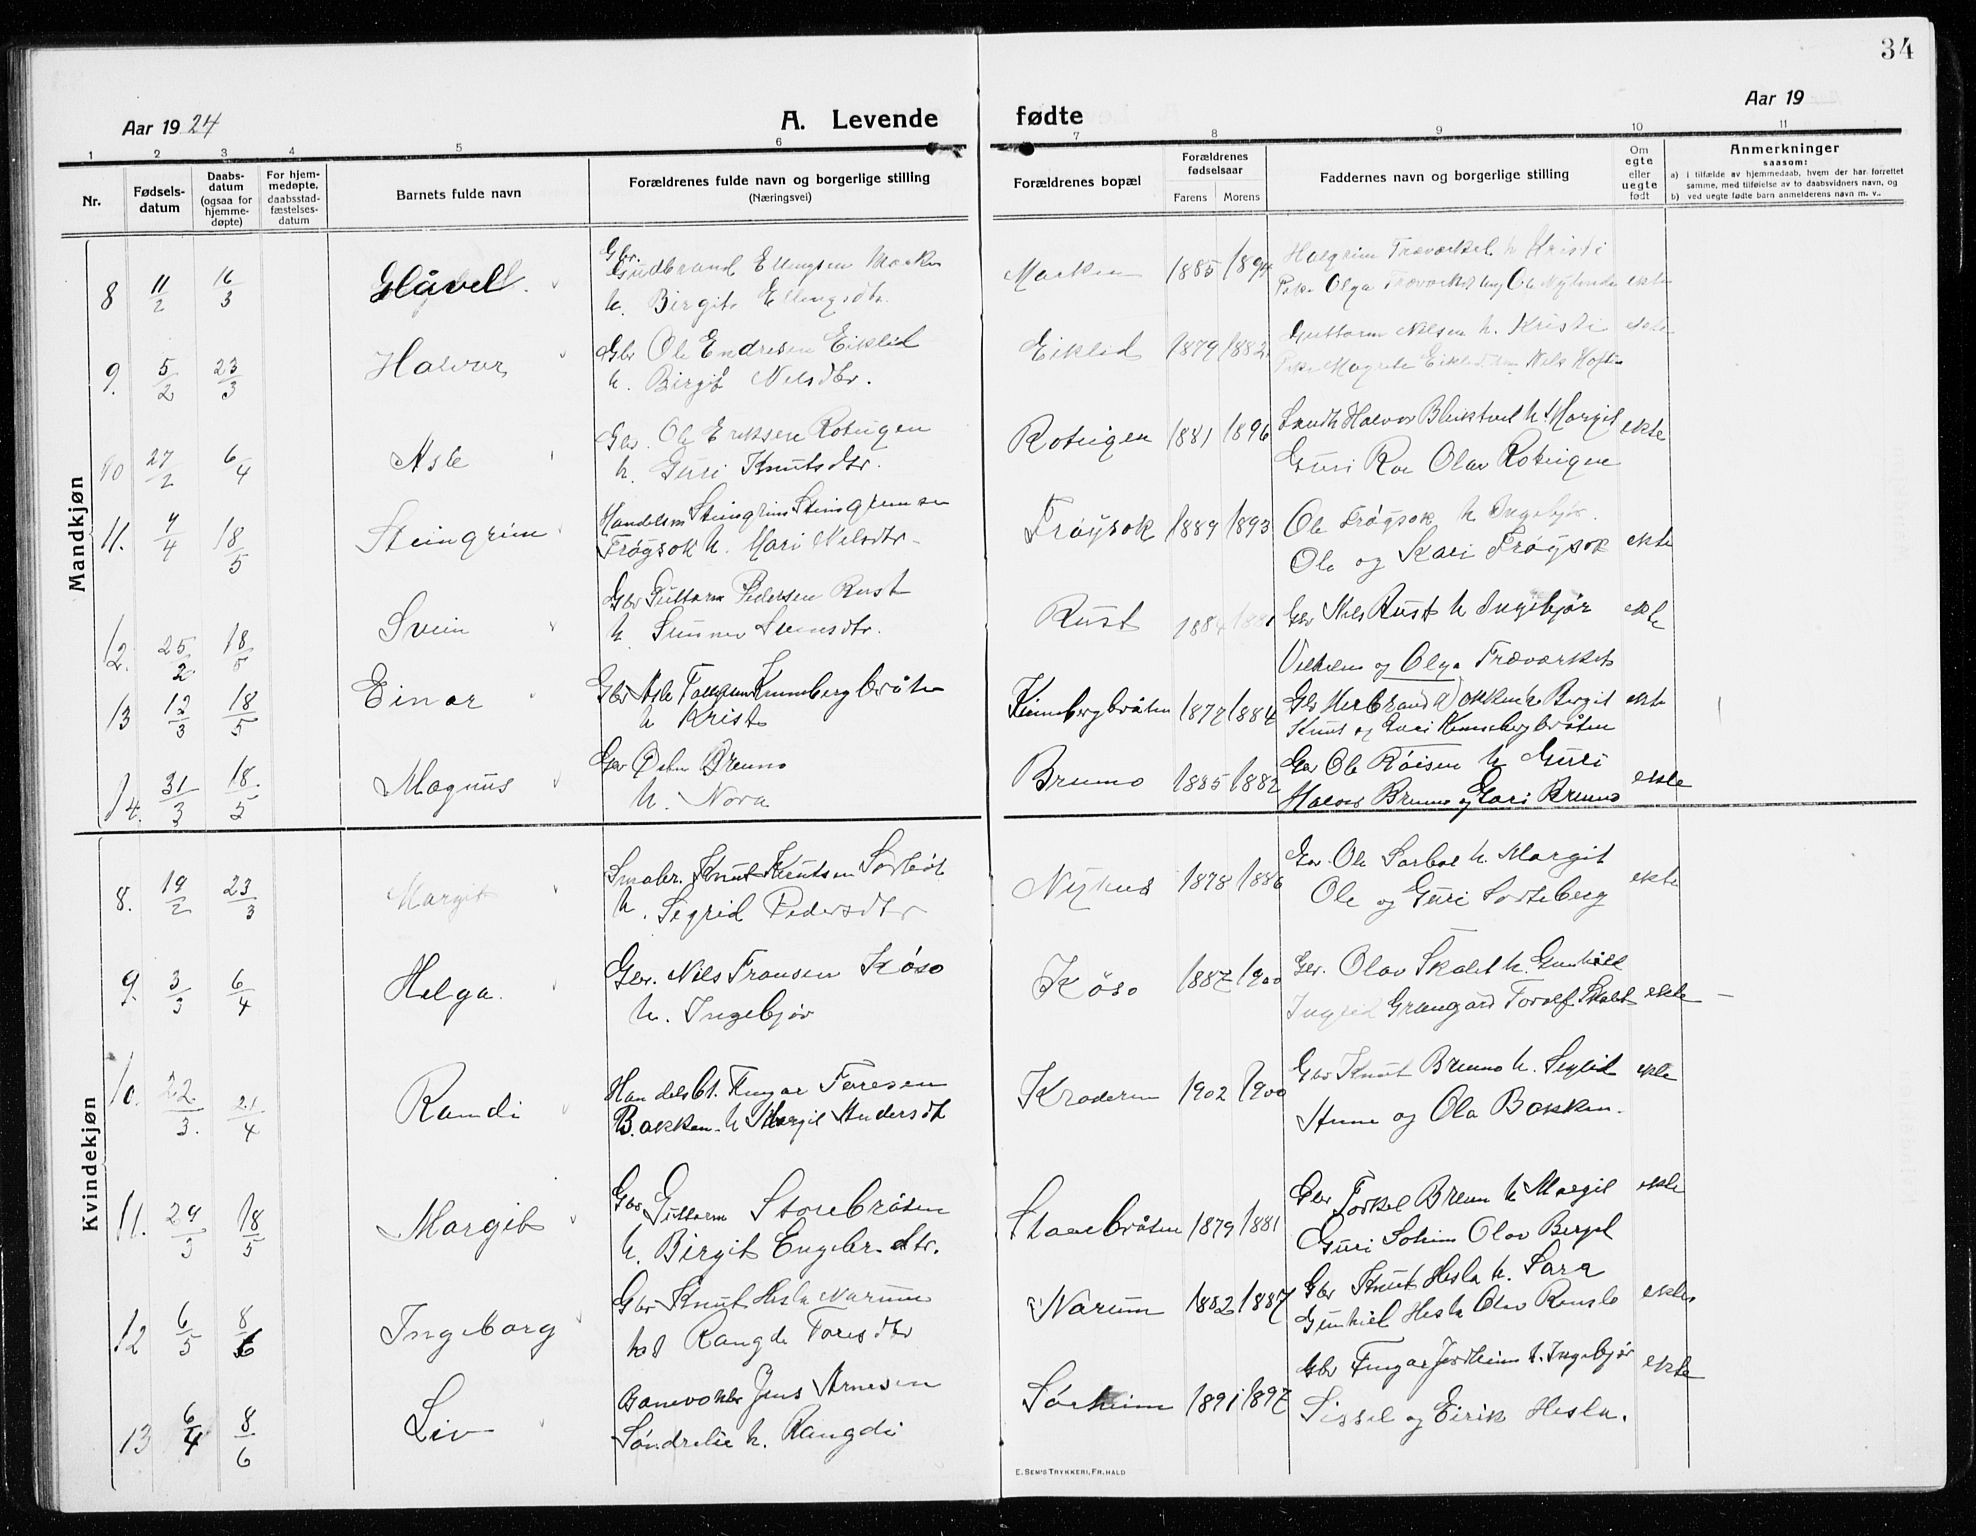 34
Aar 1924
A. Levende
fødte
Aar 19
1 2 3 4 5 6 7 8 9 10 11
Nr.
Fødsels-
datum
Daabs-
datum
(ogsaa for
hjemme-
døpte)
For hjem-
medøpte,
daabsstad-
fæstelses-
datum
Barnets fulde navn
Forældrenes fulde navn og borgerlige stilling
(Næringsvei)
Forældrenes bopæl
Forældrenes
fødselsaar
Farens Morens
Faddernes navn og borgerlige stilling
Om
egte
eller
uegte
født
Anmerkninger
saasom:
a) i tilfælde av hjemmedaab, hvem der har forrettet
samme, med tilføielse av to daabsvidners navn, og
b) ved uegte fødte barn anmelderens navn m. v.
Mandkjøn
8 11/2 16/3
Gbr.
Gudbrand Ellingsen
h. Birgit Ellingsdtr.
1885 1894
Halgrim Træværket h Kristi
Olga Træværket
ekte
9. 5/2 23/3 Halvor
Gbr Ole Endresen Eiklid
h. Birgit Nilsdtr.
Eiklid 1879 1882
Guttorm Nilsen h. Kristi ekte
Pike Magrete Eiklid Nils
10 27/2 6/4 Asle
Ole Eriksen Roteigen
h. Guri Knutsdtr.
Roteigen 1881 1896
Halvor h Margit ekte
Guri Roe Olav Roteigen
11. 4/4 18/5 Steingrim
Handelsm Steingrim Steingrimsen
Frøysok h. Mari Nilsdtr.
Frøysok 1889 1893
Ole Frøysok h Ingebjør.
Ole og Kari Frøysok ekte
12. 25/2. 18/5 Svein
Gbr Guttorm Pedersen Rust
h. Gunner Svensdtr.
Rust 1884
Gbr Nils Rust h Ingebjør ekte
Vilhelm og Olga Træværket
13 12/3 18/5 Einar
Gbr Asle
h Kristi
1884
Gbr Herbrand h Bergit ekte
Knut og
14. 31/3 18/5 Magnus
Gbr Østen Brenno
h. Nora
Brenno 1885 1882
Gbr Ole Røisen h Guri
Halvor Brenno og Gari Brenno ekte
Kvindekjøn
8. 19/2 23/3 Margit
Smabr. Knut Knutsen
h. Sigrid Pedersdtr
Nyhus 1878 1886
Gbr. Ole h. Margit
Ole og Guri Sorteberg ekte
9. 3/3 6/4 Helga.
Gbr. Nils Fransen Køso
h. Ingebjør
Køso 1887 1900
Gbr. Olav Skalet h. Gunhild
Ingrid Grangård Torolf Skalet ekte
10. 22/3. 21/4 Randi
Handelsbt. Fingar Toresen
Bakken. h Margit Andersdt
Krøderen 1902 1900
Gbr Knut Brenno h. Sigrid ekte
Anne og Ola Bakken.
11. 29/3 18/5 Margit
Gbr Guttorm Storebråten
h. Birgit Engebr.dtr.
Storebråten 1879 1881
Gbr Torkel Brenn h Margit ekte
Guri Solheim Olav
12 6/5 8/6 Ingeborg
Gbr Knut Hesla Narum
Rangdi Toresdtr
Narum 1882 1887
Gbr Knut Hesla h. Sara
Gunhild Hesla Olav ekte
13 6/4 8/6 Liv
Banevokter Jens Arnesen
Søndrelie h. Rangdi
Sørheim 1891 1897
Gbr Fingar Jordheim h. Ingebjør ekte
Sissel og Eirik Hesla.
E. SEM'S TRYKKERI, FR.HALD